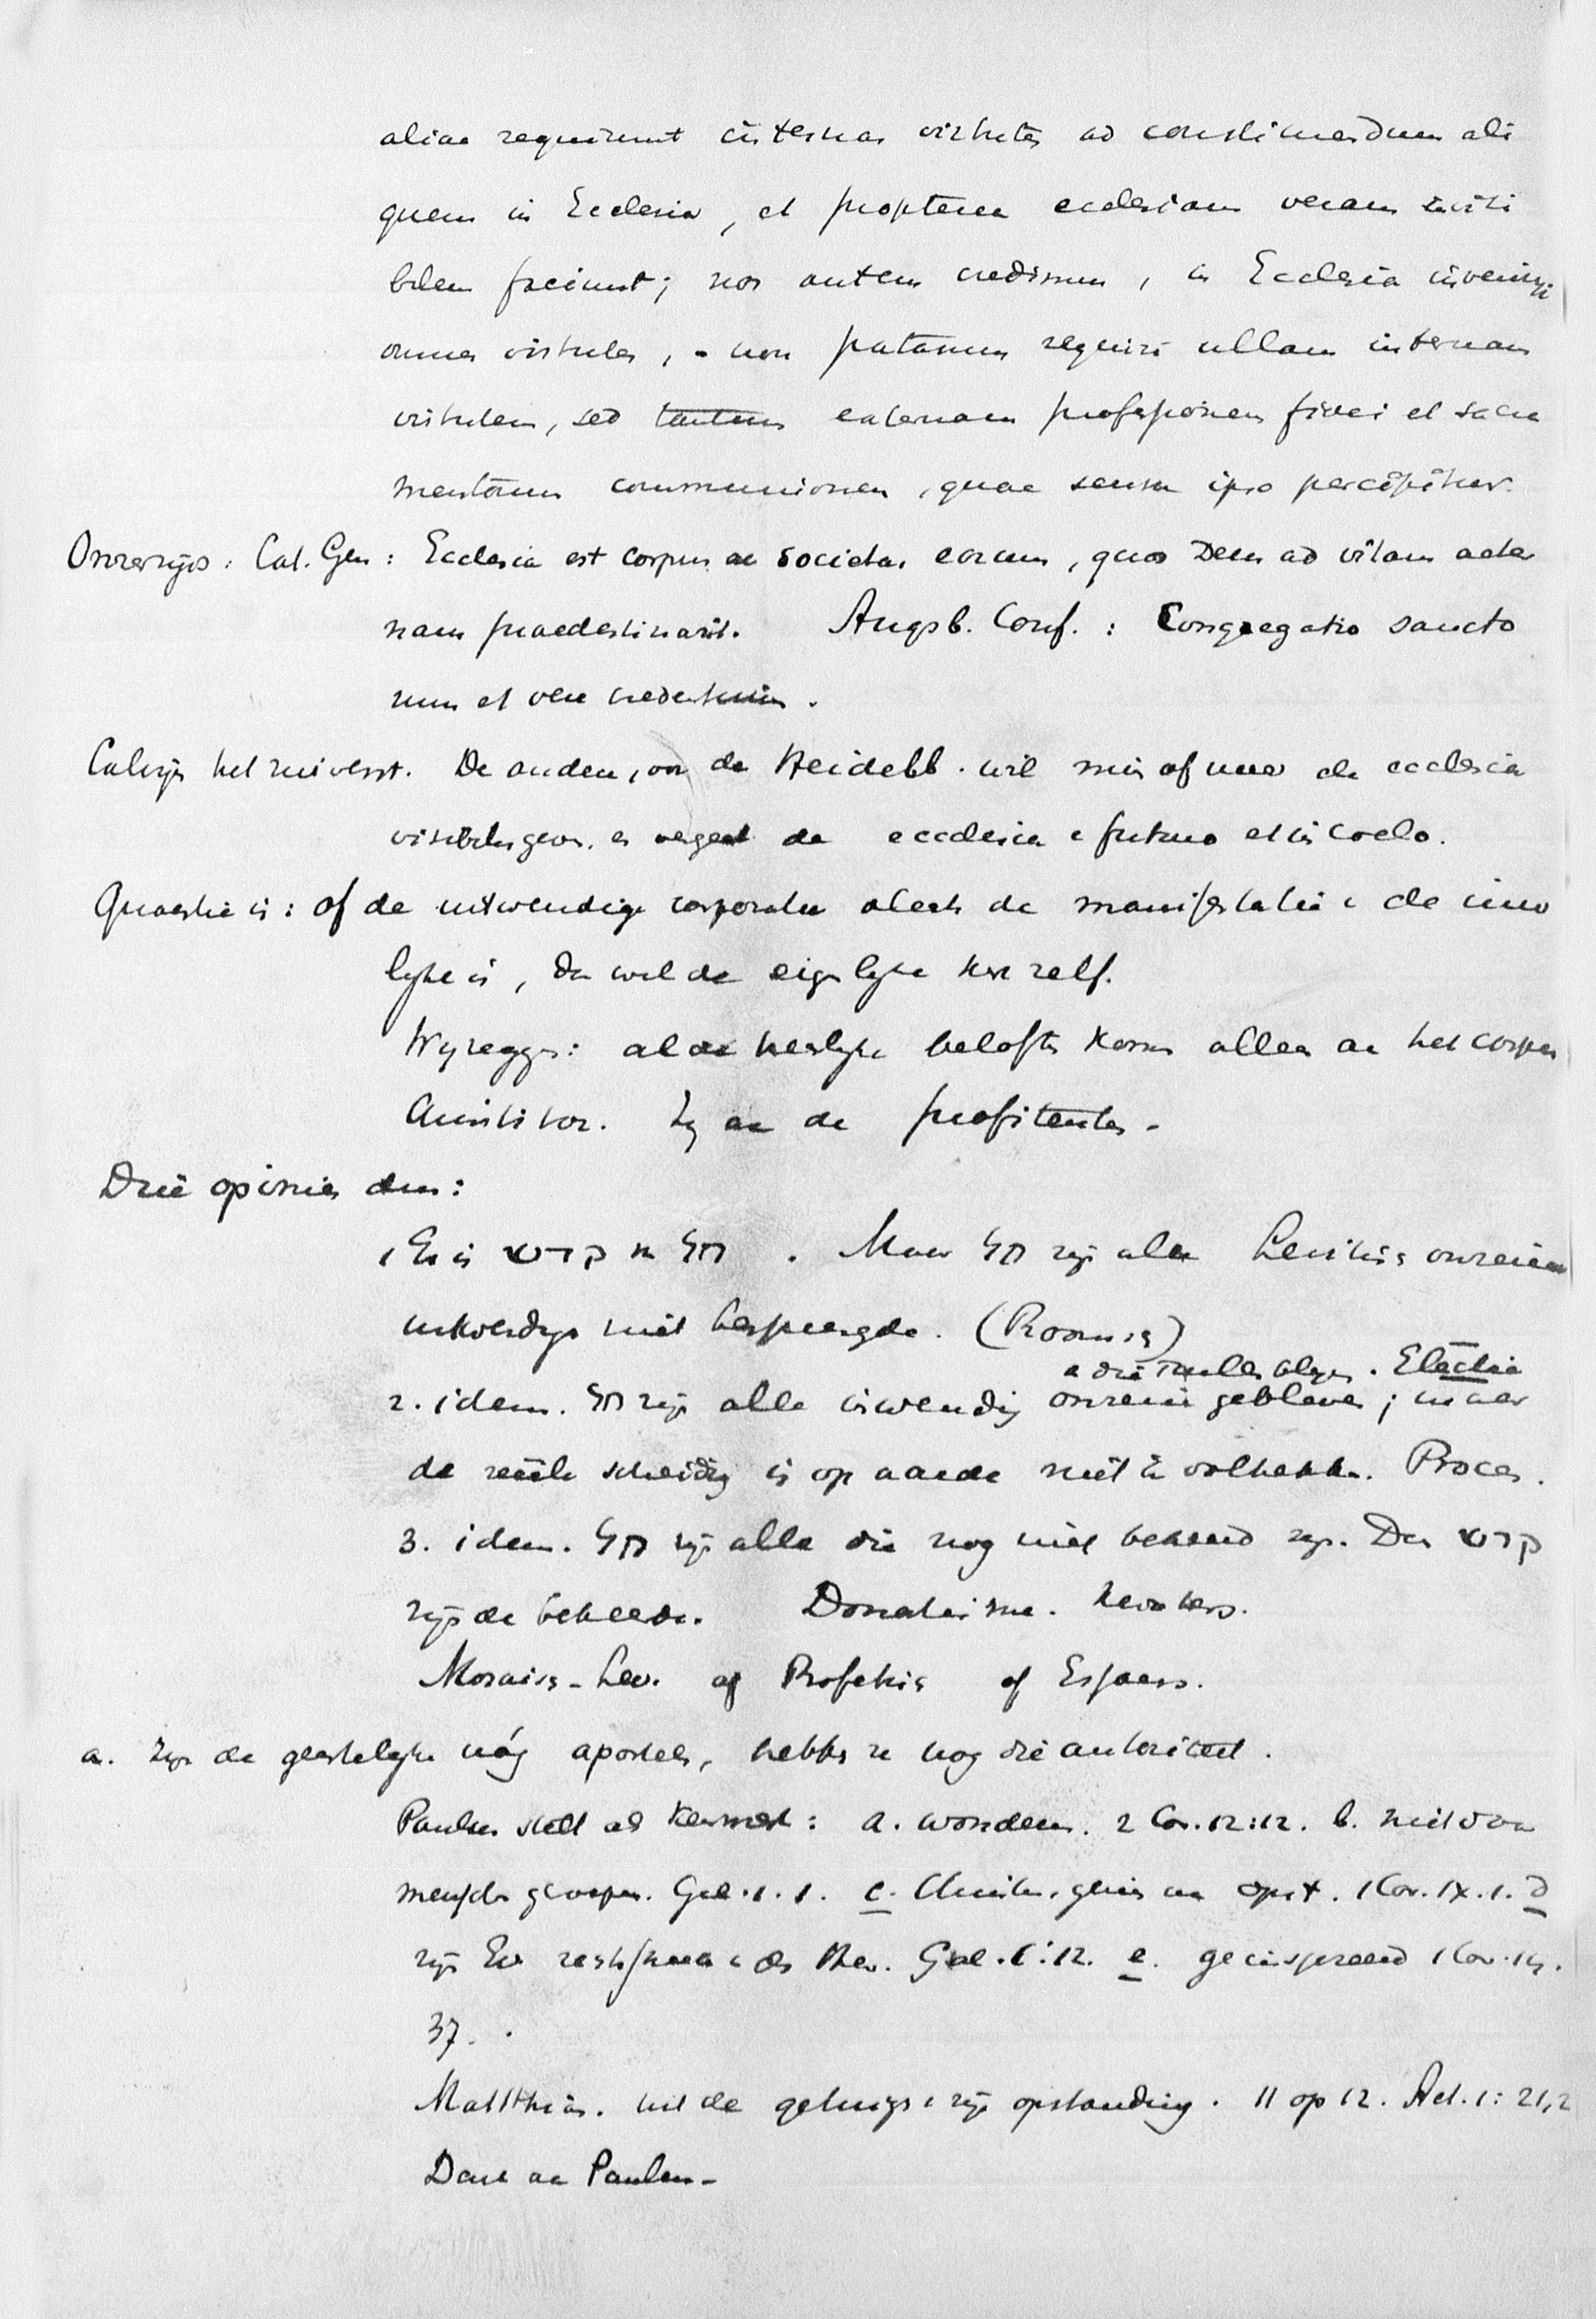 aliae requirunt internas virtutes ad constituendum ali
quem in Ecclesia, et propterea ecclesiam veram invisi
bilem faciunt; nos autem credimus, in Ecclesia inveniri
omnes virtutes, non putamus requiri ullam internam
virtutem, sed tantum externam professionem fidei et sacra
mentorum communionem, quae sensu ipso percipitur.
Onzerzijds: Cat. Gen: Ecclesia est corpus ac societas eorum, quos Deus ad vitam aeter
nam praedestinavit. Augsb. Conf.: Congregatio sancto
rum et vere credentium.
Calvijn het zuiverst. De ouden, de Heidelb. wil min of meer de ecclesia
visibilis en de ecclesia e futuro et in coelo.
Quaestie is: of de uitwendige corporatie slechts de manifestatie v de inw
lijke is, dan wel de eigelijke kerk zelf.
Wij zeggen: al de heerlijke beloften komen alleen aan het corpus
Christi toe. Zij aan de profitentes.
Drie opinies dus:
1 Er is קדש en חל. Maar חל zijn alle Levitisch onreinen
uitwendige niet besprengde. (Roomsch)
a die zullen blijven. Electie
2. idem. חל zijn alle inwendig onrein gebleven; maar
de reëele scheiding is op aarde niet te voltrekken. Proces.
3. idem. חל zijn alle die nog niet bekeerd zijn. Den קדש
zijn de bekeerden. Donatisme. Kwakers.
Mozaisch-Lev. of Profetisch of Esseers.
a. Zijn de geestelijken nóg apostelen, hebben ze nog die autoriteit.
Paulus stelt als kenmerk: a. wonderen. 2 Cor. 12:12. b. niet door
menschen geroepen. Gal. 1. 1. c. Christus gezien na opst. 1 Cor. IX. 1. d
zijn Ev rechtstreeks v den Heer. Gal. 1:12. e. geinspireerd 1 Cor. 14.
37.
Matthias. uit de getuigen v zijn opstanding. 11 op 12. Act. 1: 21, 2
Dan Paulus-